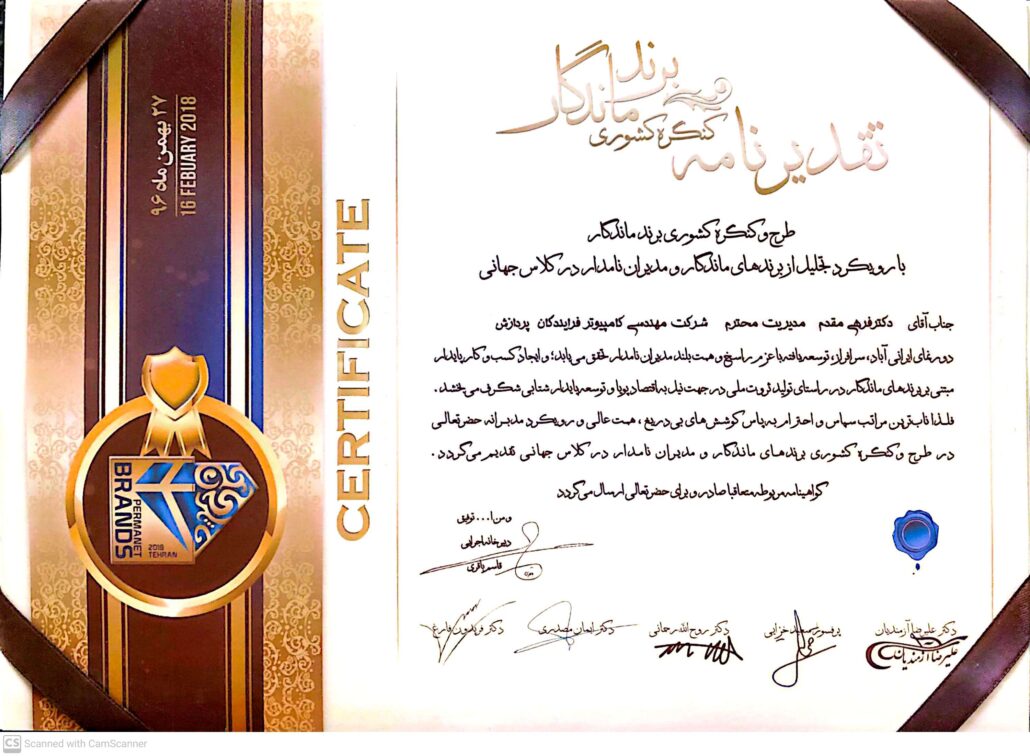 برند
ماندگار
تقدیرنامه
کنگره کشوری
طرح و کنگره کشوری برند ماندگار
با رویکرد تجلیل از برندهای ماندگار و مدیران نامدار در کلاس جهانی
جناب آقای دکتر فرهی مقدم مدیریت محترم شرکت مهندسی کامپیوتر فرایندگان پردازش
دورنمای ایرانی آباد، سرافراز، توسعه یافته با عزم راسخ و همت بلند مدیران نامدار تحقق می‌یابد؛ و ایجاد کسب و کار پایدار
مبتنی بر برندهای ماندگار در راستای تولید ثروت ملی در جهت نیل به اقتصاد پویا و توسعه پایدار شتابی شگرف می‌بخشد.
فلذا ناب‌ترین مراتب سپاس و احترام به پاس کوشش‌های بی‌دریغ، همت عالی و رویکرد مدبرانه حضرتعالی
در طرح و کنگره کشوری برندهای ماندگار و مدیران نامدار در کلاس جهانی تقدیم می‌گردد.
گواهینامه مربوطه متعاقبا صادر و برای حضرتعالی ارسال می‌گردد
و من ا... توفیق
دبیرخانه اجرایی
قاسم باقری
دکتر علیرضا آزمندیان
پرفسور سعید خزایی
دکتر روح الله رحمانی
دکتر ایمان
دکتر فریدون فارغ
علیرضا آزمندیان
CERTIFICATE
۲۷ بهمن ماه ۹۶
16 FEBUARY 2018
PERMANET
BRANDS
2018
TEHRAN
CS Scanned with CamScanner